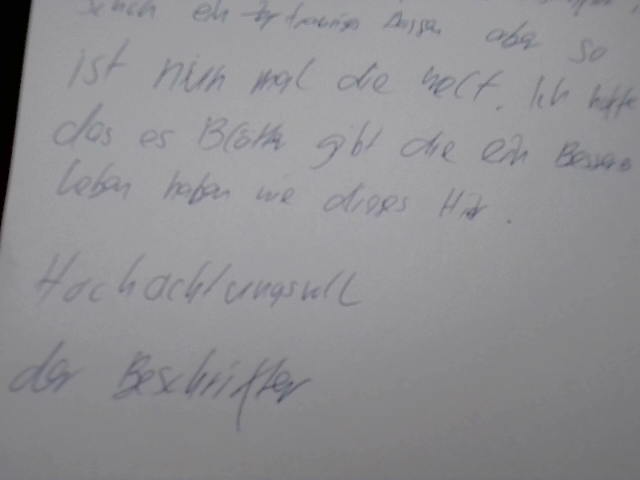 ein trauriges aber so
ist nun mal die welt. Ich hoffe
das es Blätter gibt die ein Besseres
leben haben wie dieses Hir.
Hochachtungsvoll
der Beschrifter